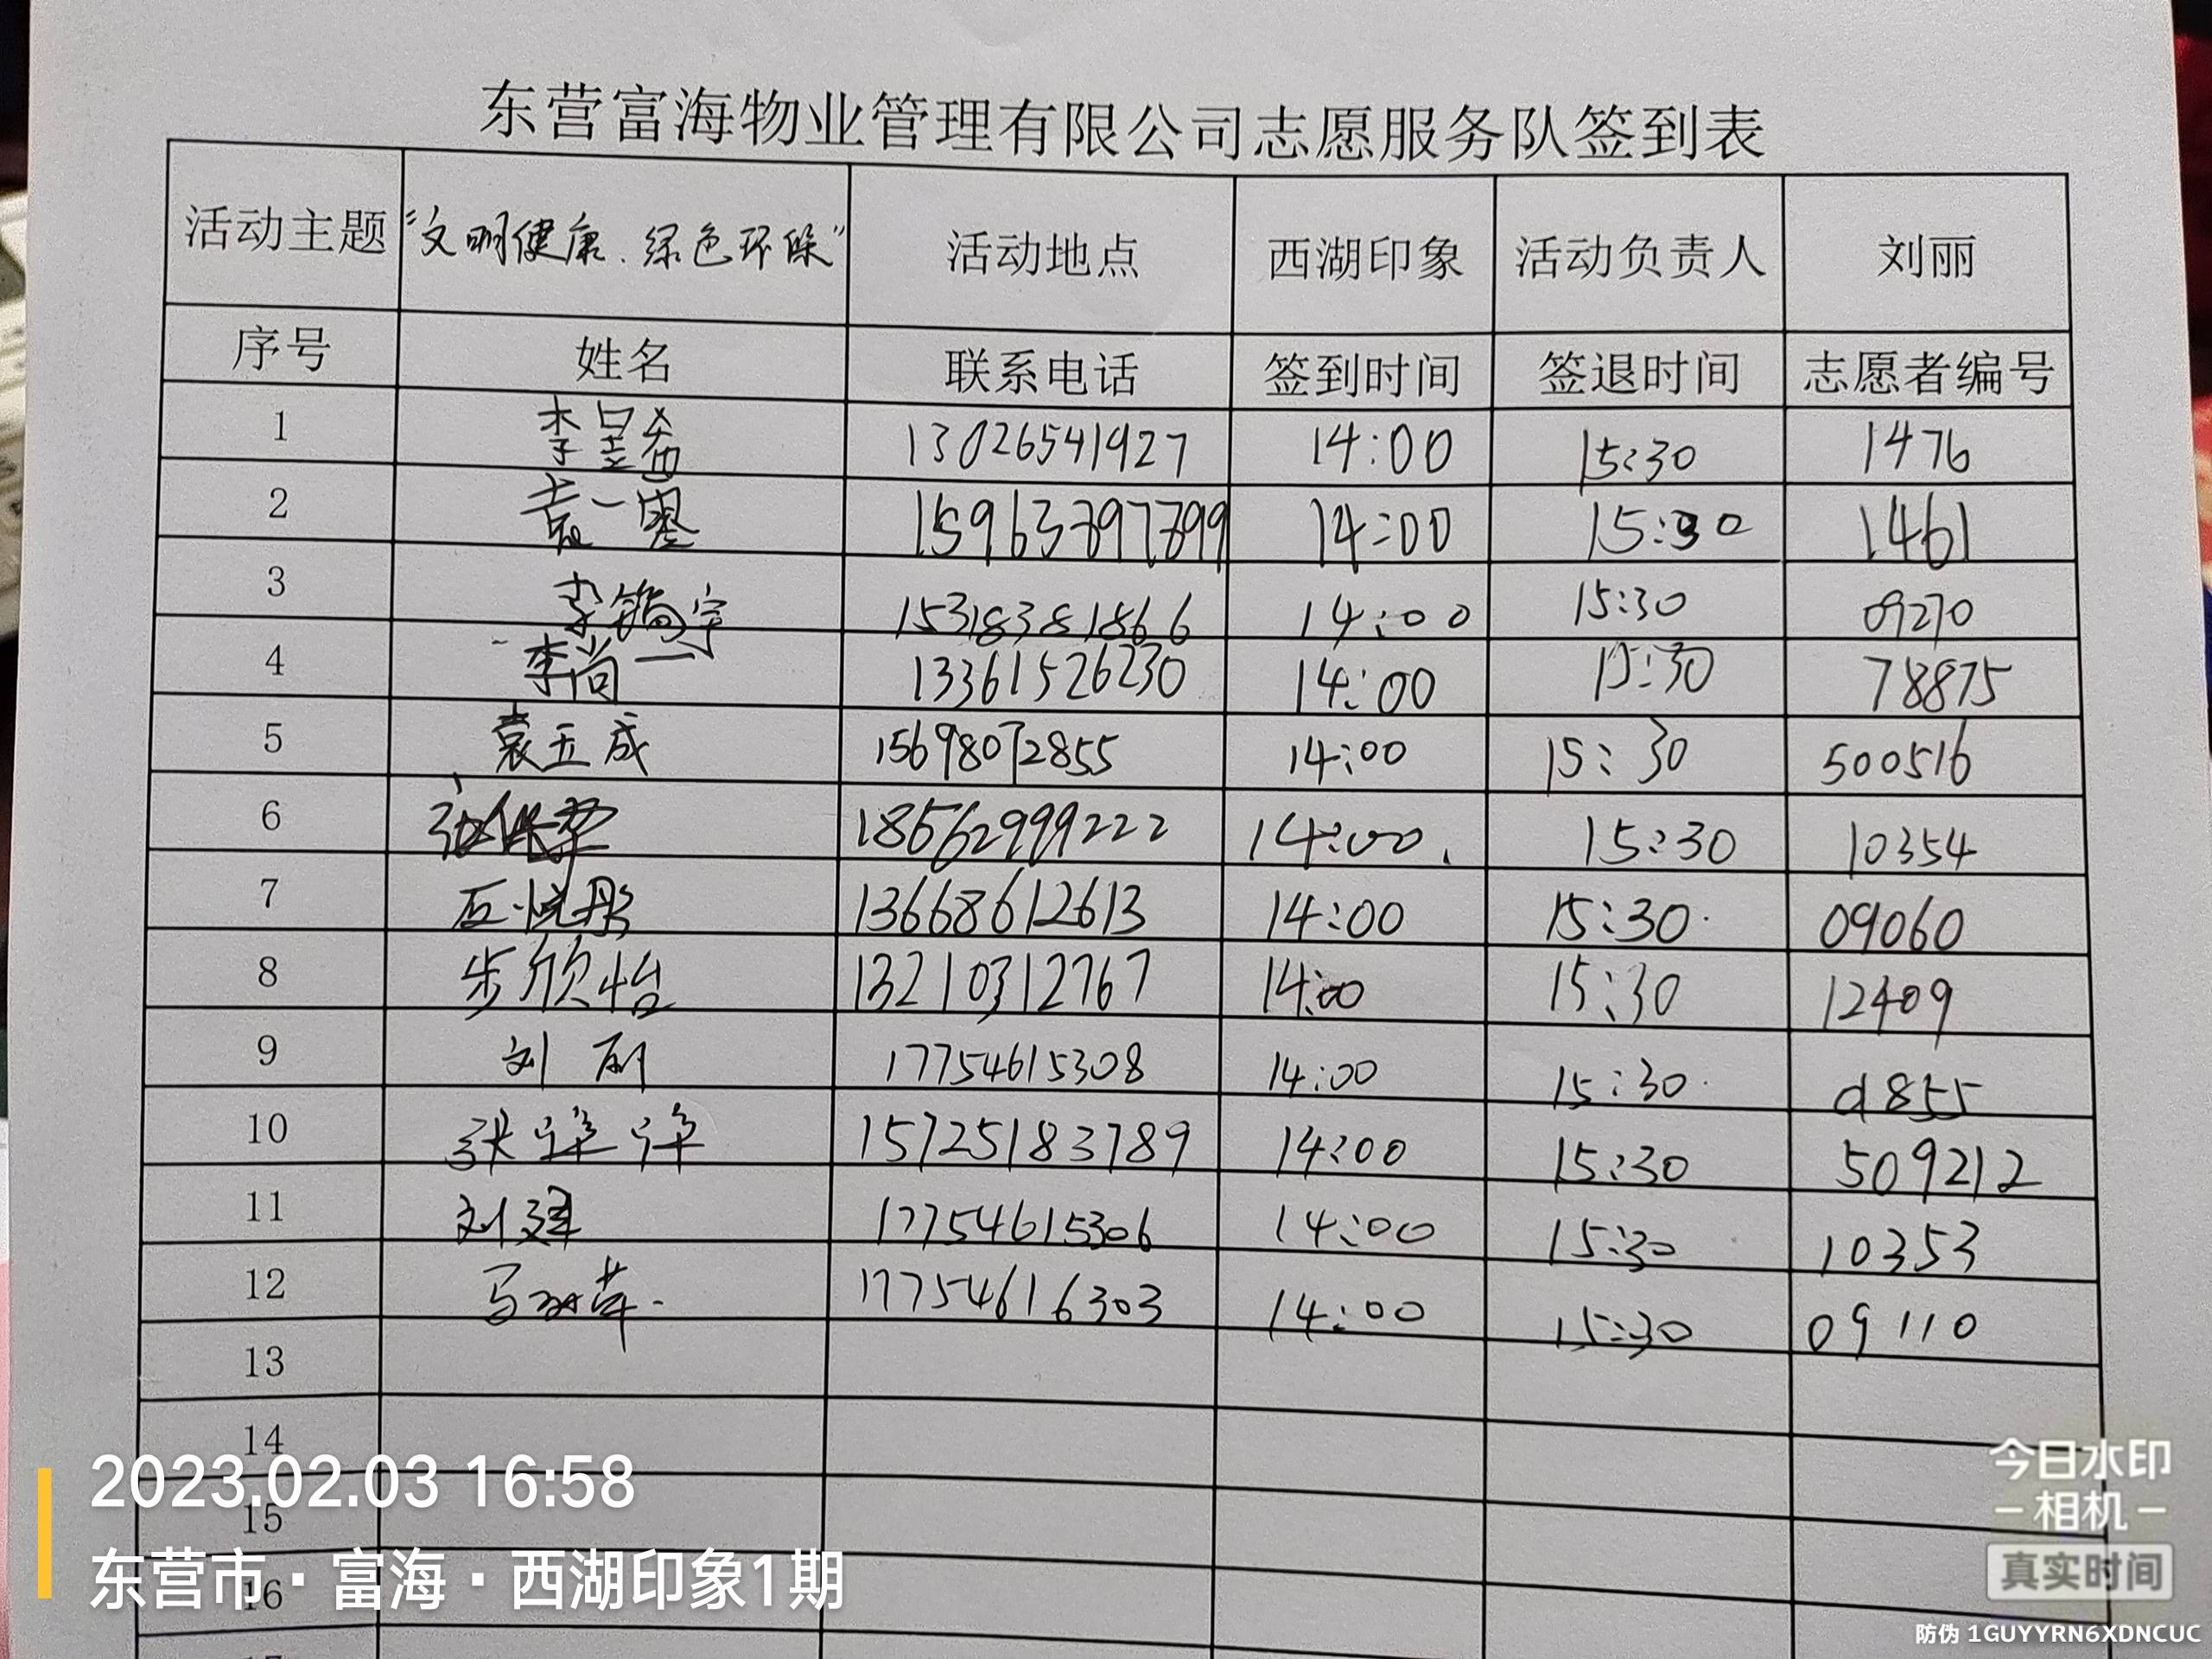 东营富海物业管理有限公司志愿服务队签到表
活动主题 "文明健康、绿色环保" 活动地点 西湖印象 活动负责人 刘丽
序号 姓名 联系电话 签到时间 签退时间 志愿者编号
1 李昱希 13026541927 14:00 15:30 1476
2 袁一 15963797799 14:00 15:30 1461
3 李 宇 15318381866 14:00 15:30 09270
4 李尚一 13361526230 14:00 15:30 78875
5 袁玉成 15698072855 14:00 15:30 500516
6 18562999222 14:00 15:30 10354
7 石悦彤 13668612613 14:00 15:30 09060
8 步欣怡 13210312767 14:00 15:30 12409
9 刘丽 17754615308 14:00 15:30 855
10 张 15725183789 14:00 15:30 509212
11 刘建 17754615306 14:00 15:30 10353
12 马 17754616303 14:00 15:30 09110
13
14
15
16
2023.02.03 16:58
东营市·富海·西湖印象1期
今日水印
-相机-
真实时间
防伪 1GUYYRN6XDNCUC